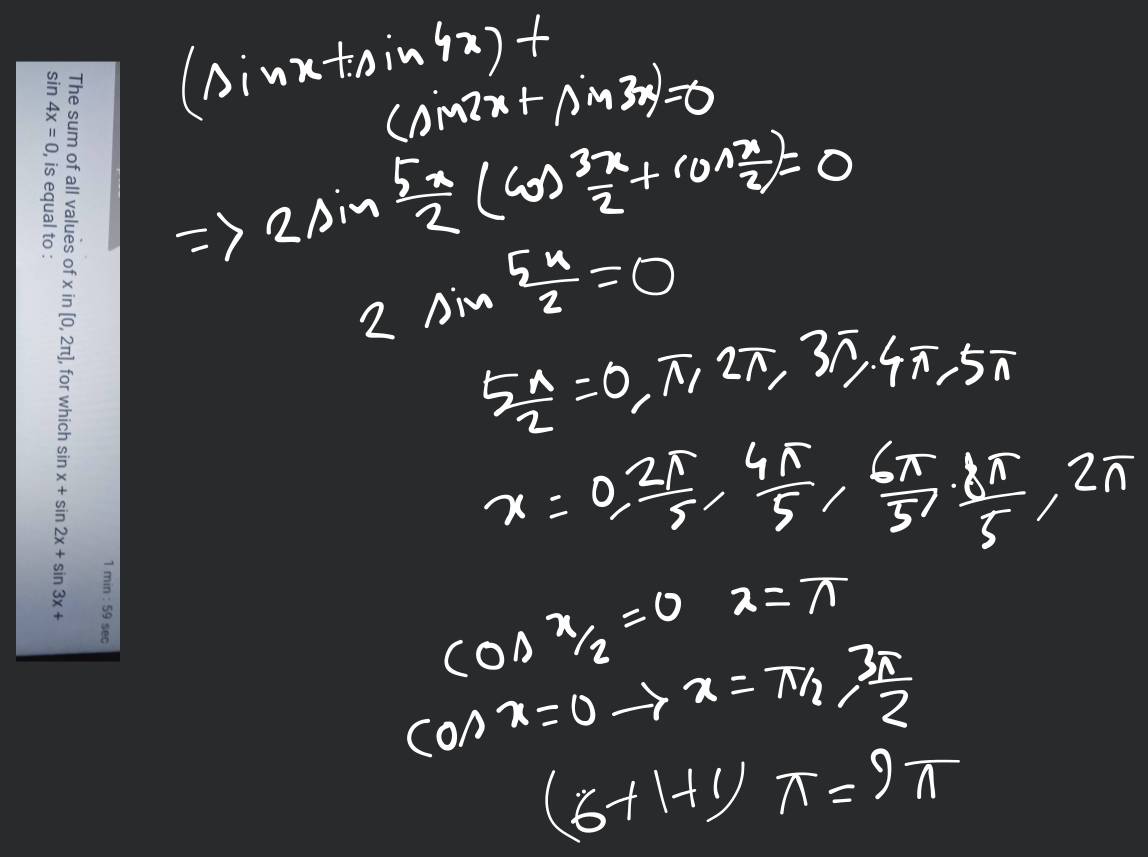 1 min : 59 sec
The sum of all values of x in [0, 2π], for which sin x + sin 2x + sin 3x +
sin 4x = 0, is equal to :
(sinx+sin4x)+
(sin2x+ sin3x)=0
=> 2sin 5x/2 (cos 3x/2 + cos x/2)= 0
2 sin 5x/2 =0
5x/2 =0, π, 2π, 3π, 4π, 5π
x = 0, 2π/5, 4π/5, 6π/5, 8π/5, 2π
cos x/2 =0 x=π
cos x=0 → x= π/2, 3π/2
(6+1+1) π = 9π